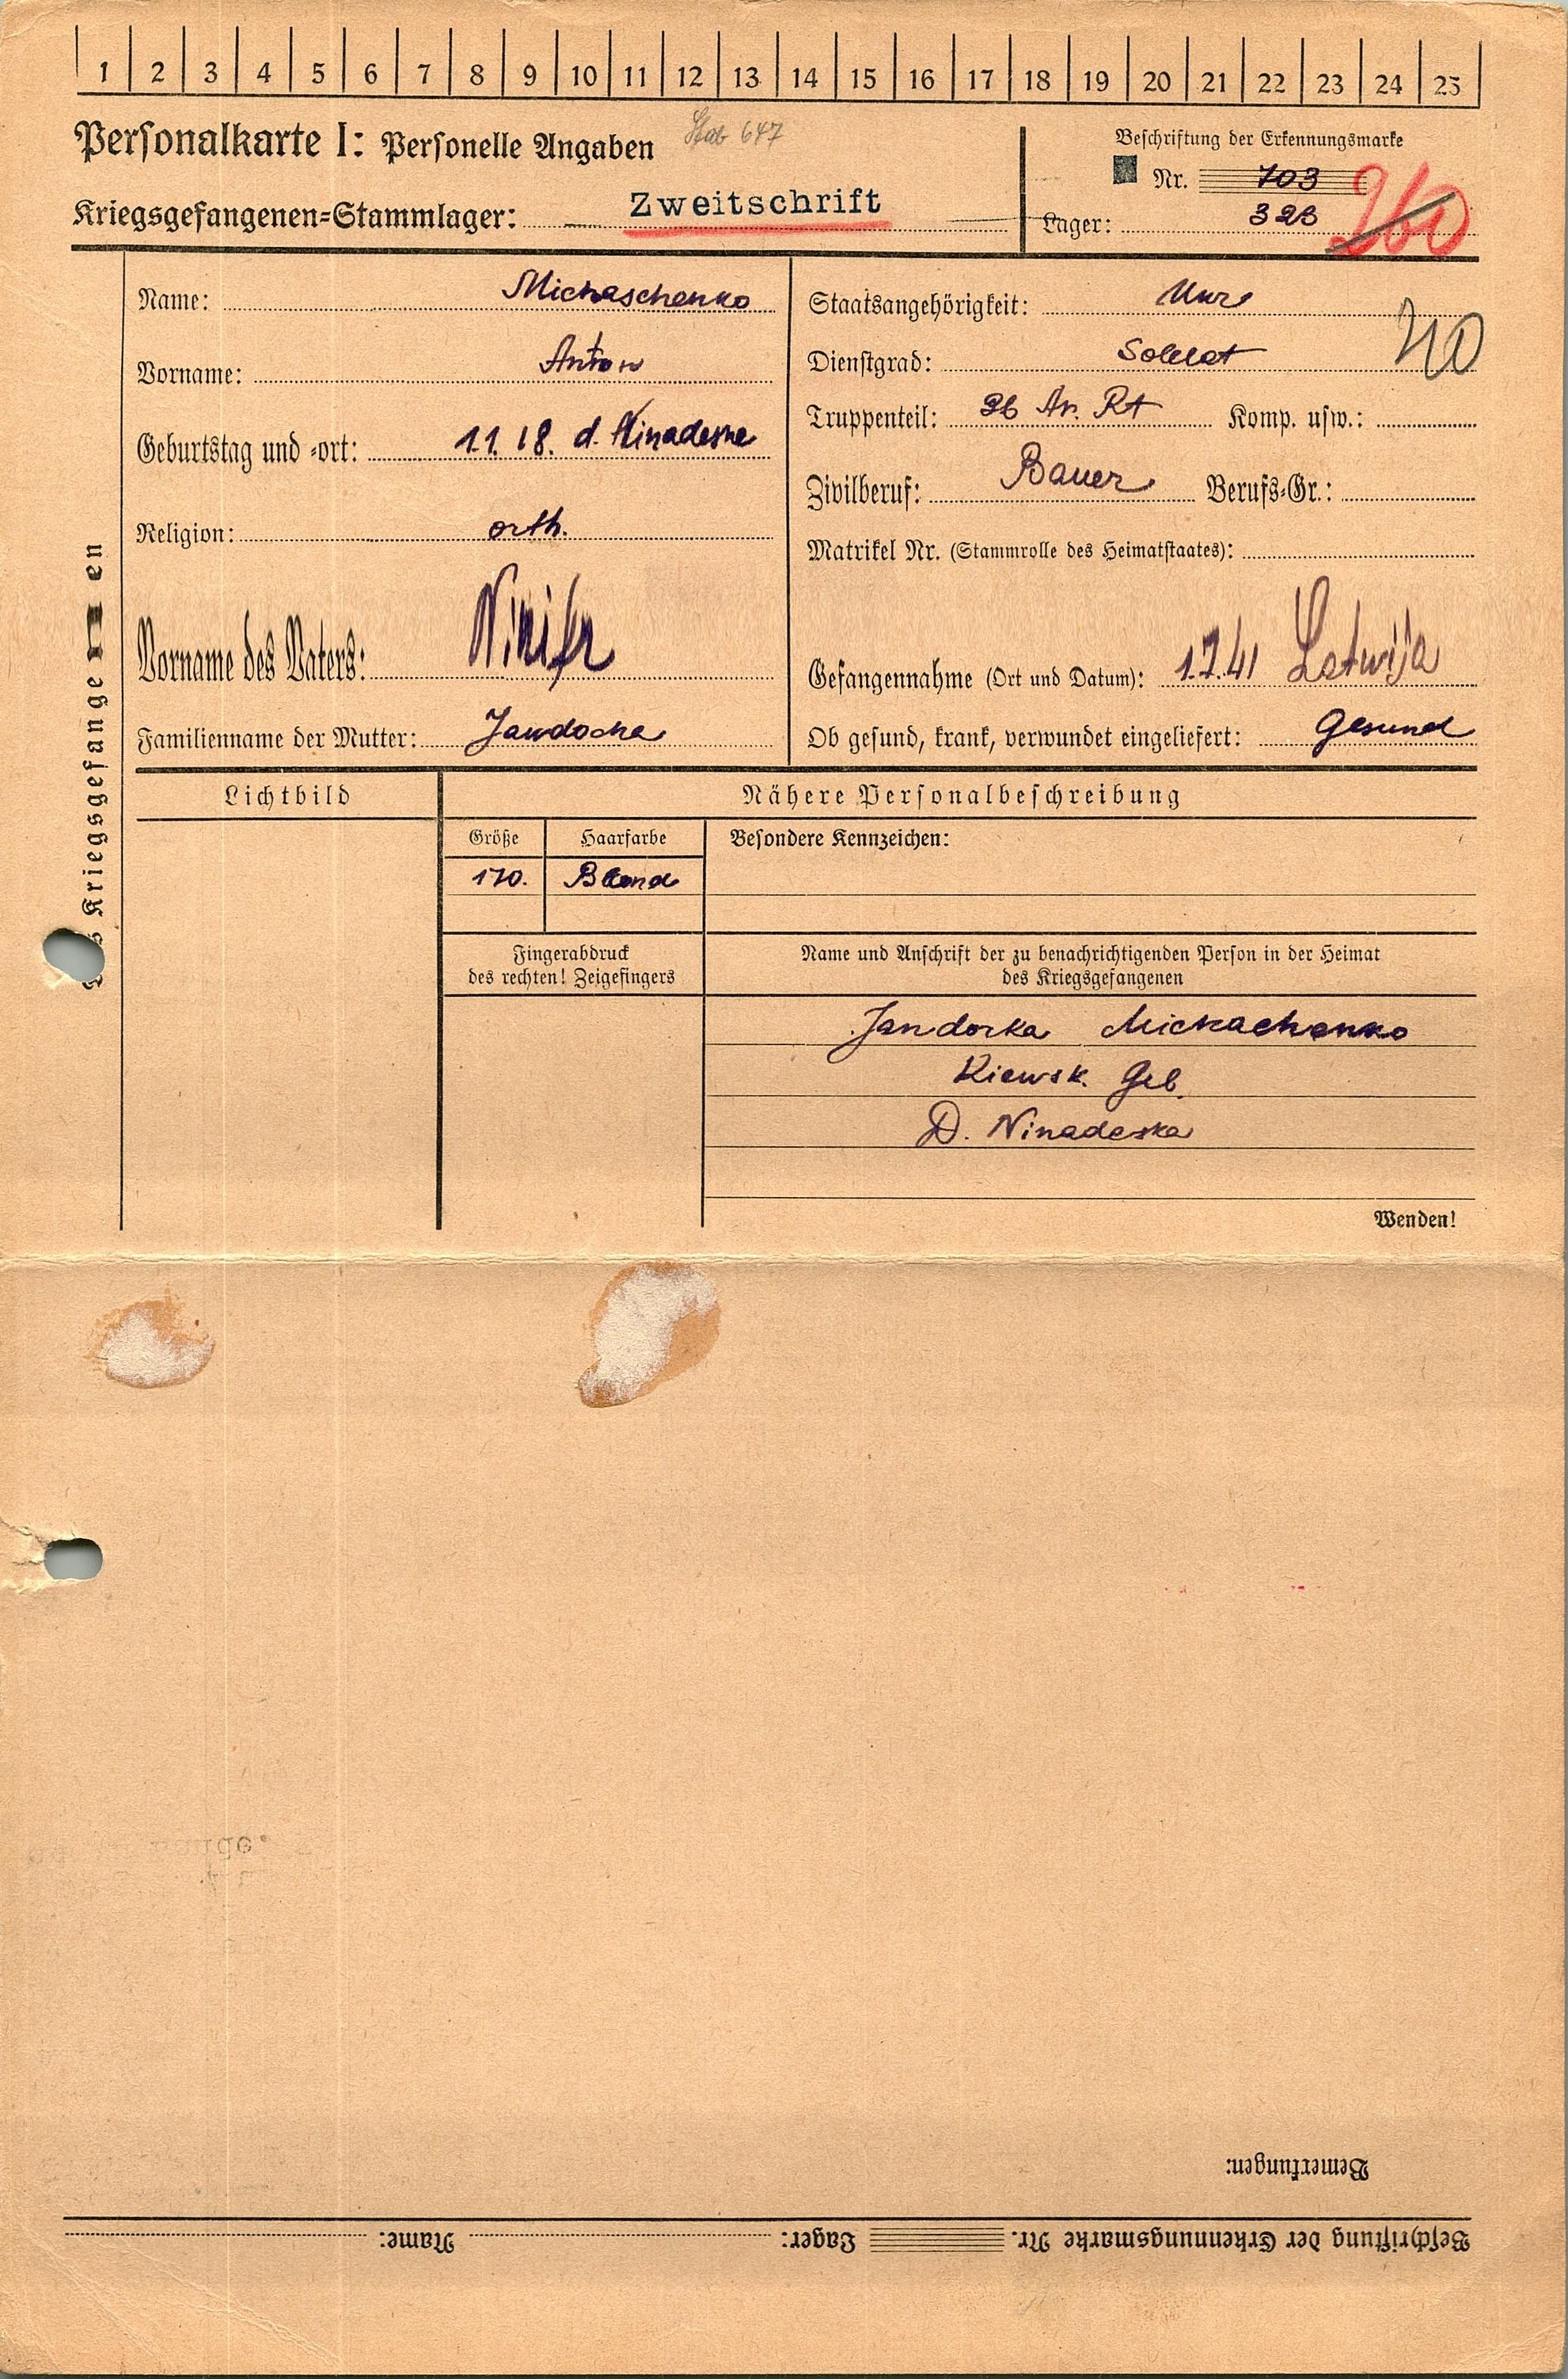 1 2 3 4 5 6 7 8 9 10 11 12 13 14 15 16 17 18 19 20 21 22 23 24 25
Personalkarte I: Personelle Angaben 647
Kriegsgefangenen=Stammlager: Zweitschrift
Beschriftung der Erkennungsmarke
Nr. 703
Lager: 323 260
Name: Michaschenko
Vorname: Anton
Geburtstag und =ort: 1.1.18. d.
Religion: orth.
Vorname des Vaters:
Familienname der Mutter: Jawdocha
Staatsangehörigkeit:
Dienstgrad: Soldat
Truppenteil: 26 Ar. Rt Komp. usw.:
Zivilberuf: Bauer Berufs=Gr.:
Matrikel Nr. (Stammrolle des Heimatstaates):
Gefangennahme (Ort und Datum): 1.7.41 Latwija
Ob gesund, krank, verwundet eingeliefert: Gesund
Kriegsgefange en
Lichtbild
Nähere Personalbeschreibung
Größe Haarfarbe Besondere Kennzeichen:
170. Blond
Fingerabdruck
des rechten! Zeigefingers
Name und Anschrift der zu benachrichtigenden Person in der Heimat
des Kriegsgefangenen
Jandorka Michachenko
Kiewsk. Geb.
D. Ninadeska
Wenden!
Bemerkungen:
Beschriftung der Erkennungsmarke Nr. Lager: Name: